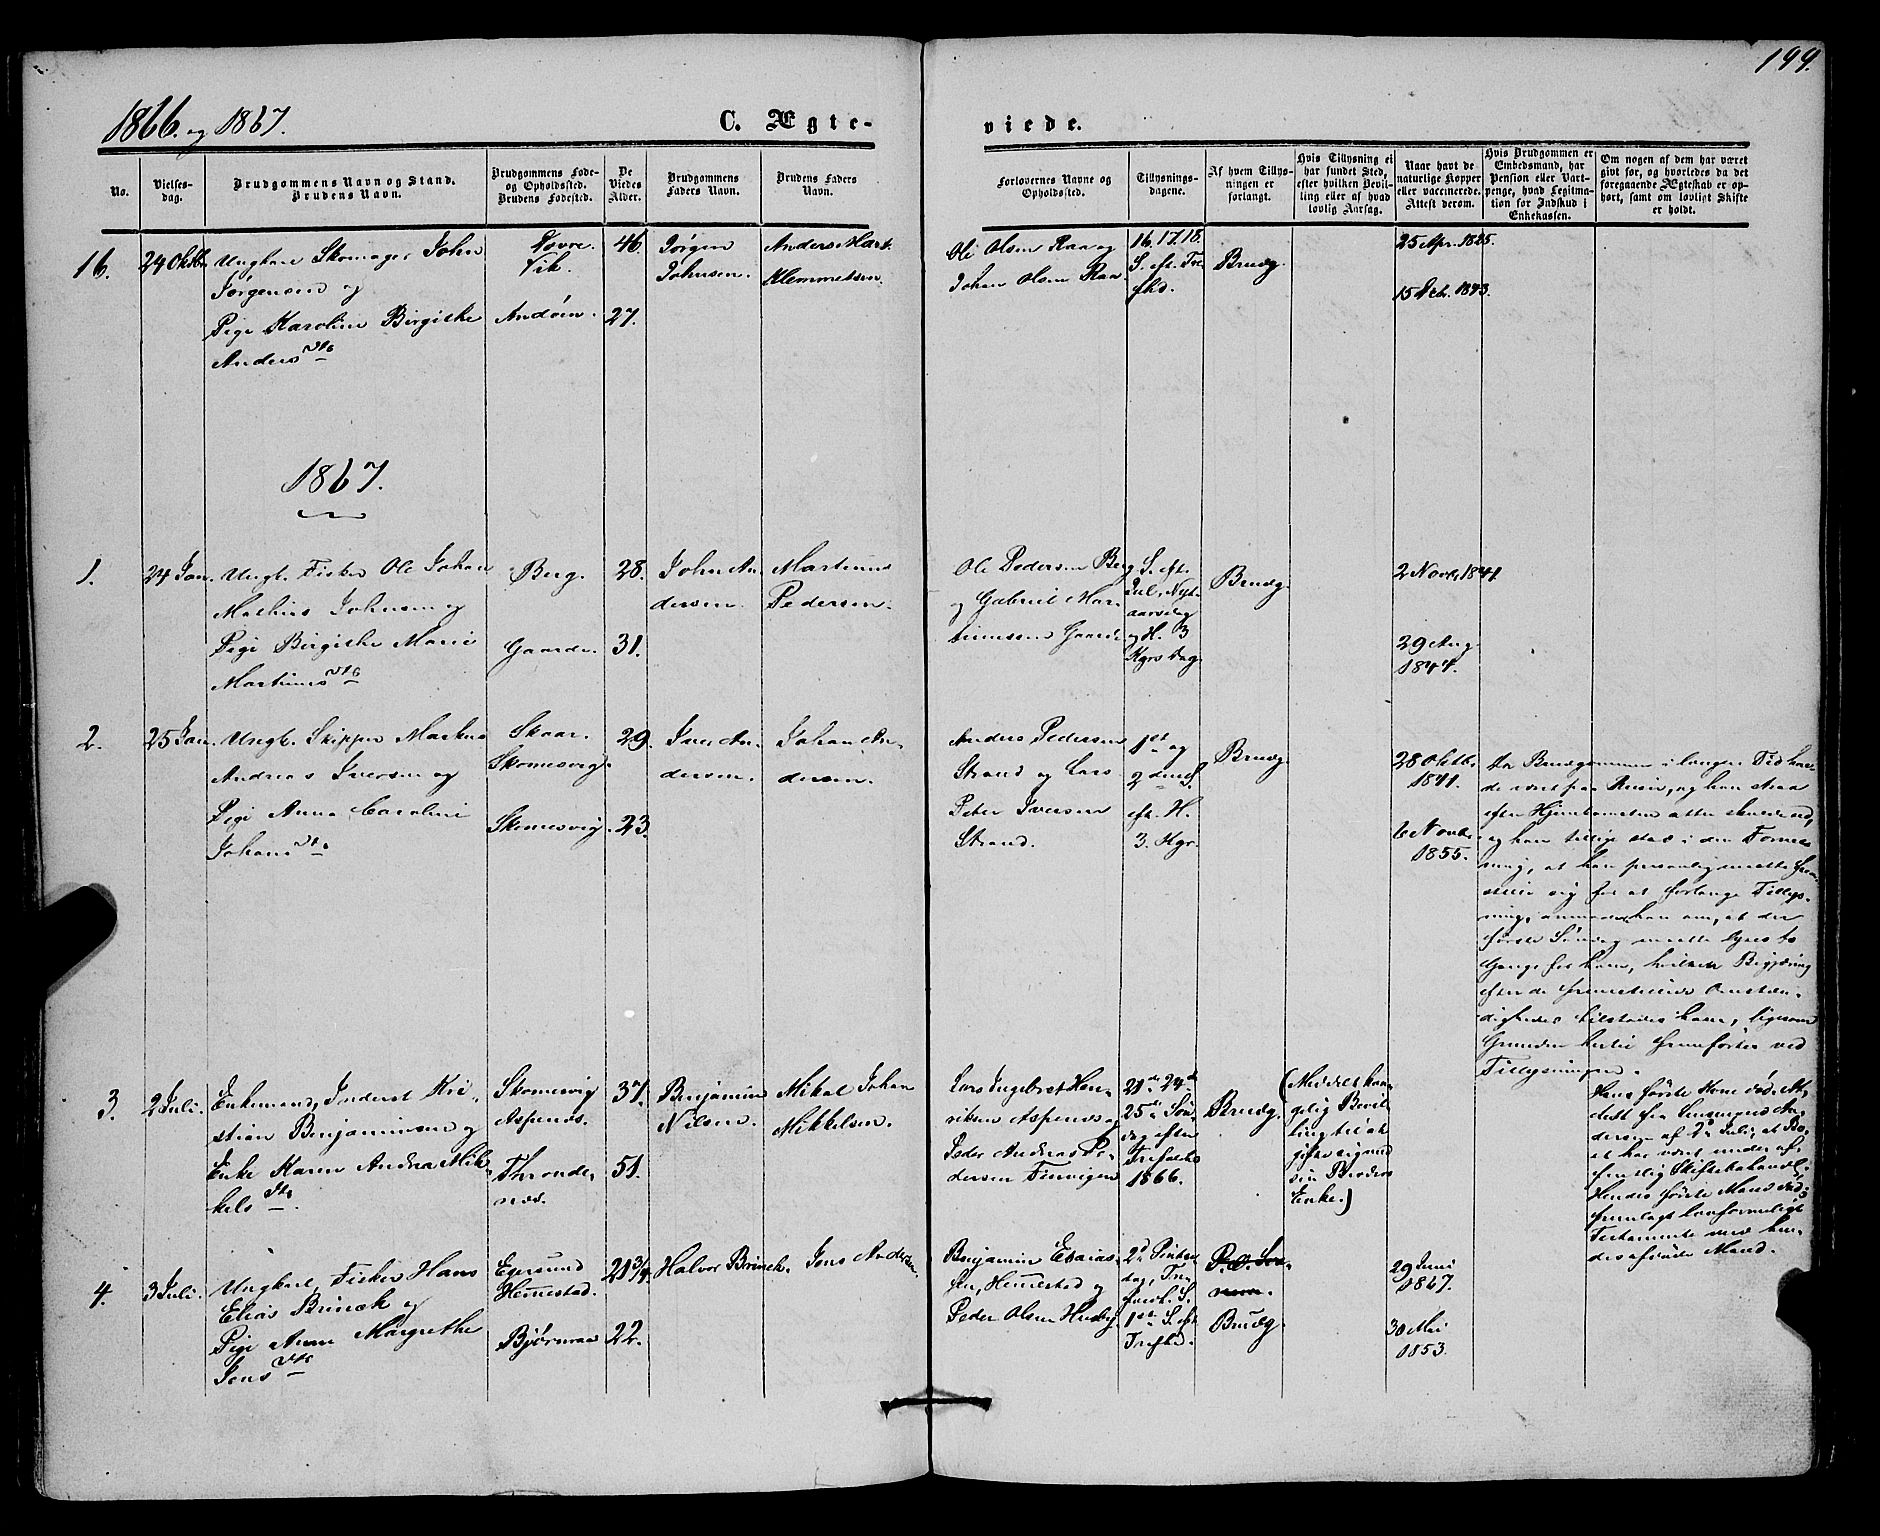 199.
1866. og 1867.
C. Ægte-
viede.
No.
Vielses-
dag.
Brudgommens Navn og Stand.
Brudens Navn.
Brudgommens Føde-
og Opholdssted.
Brudens Fødested.
De
Viedes
Alder.
Brudgommens
Faders Navn.
Brudens Faders
Navn.
Forlovernes Navne og
Opholdssted.
Tillysnings-
dagene.
Af hvem Tillys-
ningen er
forlangt.
Hvis Tillysning ei
har fundet Sted,
efter hvilken Bevil-
ling eller af hvad
lovlig Aarsag.
Naar havt de
naturlige Kopper
eller vaccinerede.
Attest derom.
Hvis Brudgommen er
Embedsmand, har
Pension eller Vart-
penge, hvad Legitima-
tion for Indskud i
Enkekassen.
Om nogen af dem har været
givt før, og hvorledes da det
foregaaende Ægteskab er op-
hørt, samt om lovligt Skifte
er holdt.
16.
24 Oktb.
Ungkarl Skomager John
Jørgensen og
Pige Karoline Birgithe
Andersdtr
Dovre.
Vik.
Andøen.
46.
27.
Jørgen
Johnsen.
Anders Mart.
Klemmetsen.
Ole Olsen Raa og
Johan Olsen Raa
16. 17. 18.
S. eft. Tre
fhd.
Brudg.
25 Apr. 1825.
15 1843.
1867.
1.
24 Jan.
Ungk. Fisker Ole Johan
Mathias Johnsen og
Pige Birgithe Marie
Martinusdtr
Berg.
Gaarde.
28.
31.
John An-
dersen.
Martinus
Pedersen.
Ole Pedersen Berg
og Gabriel Mar-
tinussen Gaarde
S. eft.
Jul, Nyt-
aarsdag
og H. 3
Kgrs Dag.
Brudg.
2 Novb. 1841.
29 Aug
1844.
2.
25 Jan.
Ungk. Skipper Markus
Andreas Iversen og
Pige Anna Caroline
Johansdtr
Skaar.
Skomesvig.
Skomesvig.
29.
23.
Iver An-
dersen.
Johan An-
dersen.
Anders Pedersen
Strand og Lars
Peter Iversen
Strand.
1ste og
2den S.
eft. H.
3. Kgr.
Brudg.
28 Oktb.
1841.
6 Novb.
1855.
Da Brudgommen i længere Tid hav-
de været paa Reise, og han strax
efter Hjemkomsten atter skulde ud,
og han tillige stod i den Formee-
ning, at han personlig maatte frem-
stille sig for at forlange Tillys-
ning, anmodede han om, at der
første Søndag maatte lyses to
Gange for ham, hvilken Begjæring
efter de fremstillede Omstæn-
digheder tilstodes ham, ligesom
Grunden hertil fremførtes ved
Tillysningen.
3.
2 Juli.
Enkemand, Inderst Kri-
stian Benjaminsen og
Enke Karen Andrea Mik-
kelsdtr.
Skomesvig
Aspenæs.
Throndenæs.
37.
51.
Benjamin
Nilsen.
Mikal Johan
Mikkelsen.
Lars Ingebret Hen-
riksen Aspenæs og
Peder Andreas Pe-
dersen Finvigen
21de 24de
25de Søn-
dag efter
Trefoldh.
1866.
Brudg.
(Meddelt kon-
gelig Bevil-
ling til at
gifte sig med
sin Broders
Enke.)
Hans første Kone død. At-
dett fra Lensmand An-
dersen af 2d Juli, at Bo-
et har været under of-
fentlig Skiftebehandl.;
Hendes første Mand død;
fremlagt konformeligt
Testamente med hen-
des afdøde Mand.
4.
3 Juli.
Ungkarl, Fisker Hans
Elias Brinck og
Pige Anne Margrethe
Jensdtr
Egersund
Hemestad.
Bjørnraa
21 3/4
22.
Halvor Brinck.
Jens Andersen.
Benjamin Esaias-
sen, Hemestad og
Peder Olsen Husby.
2d Pintse-
dag, Tre-
foldh. S.
1ste S. eft
Trefhd.
Brudg.
29 Juni
1867.
30 Mai
1853.